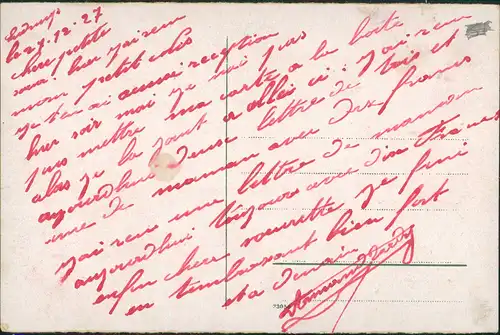 le 27-12-27
chere petite
soeur hier j'ai reçu
mon petit colis
je t'en ai accusé reception
hier soir moi je n'ai pas
pus mettre ma carte a la boite
alors je la joint a celle ci. j'ai reçu
aujourdhui deux lettre de toi et
une de maman avec dix francs
j'ai recu une lettre de maman
aujourdhui toujours avec dix francs
enfin chere soeurette je fini
en t'embrassant bien fort
et a demain